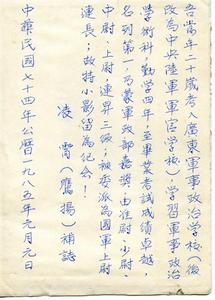 吾年二十歲考入廣東軍事政治學校(後
改為中央陸軍軍官學校)學習軍事政治
學術科,勤學四年,至畢業考試成績卓越,
名列第一,乃蒙軍政部嘉獎,由准尉、少尉、
中尉、上尉連昇三級,被委派為國軍上尉
連長;故特小影留為紀念!
凌霄(鷹揚)補誌
中華民國七十四年公曆一九八五年元月元日